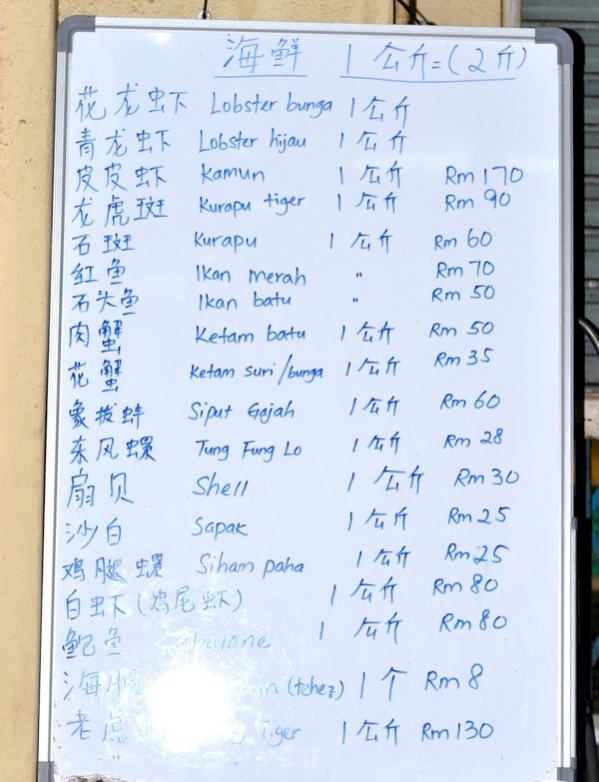 海鲜 1 公斤=(2斤)
花龙虾 Lobster bunga 1公斤
青龙虾 Lobster hijau 1公斤
皮皮虾 Kamun 1公斤 Rm 170
龙虎斑 Kurapu tiger 1公斤 Rm 90
石斑 Kurapu 1公斤 Rm 60
红鱼 Ikan merah " Rm 70
石头鱼 Ikan batu " Rm 50
肉蟹 Ketam batu 1公斤 Rm 50
花蟹 Ketam suri/bunga 1公斤 Rm 35
象拔蚌 Siput Gajah 1公斤 Rm 60
东风螺 Tung Fung Lo 1公斤 Rm 28
扇贝 Shell 1公斤 Rm 30
沙白 Sapak 1公斤 Rm 25
鸡腿螺 Siham paha 1公斤 Rm 25
白虾(鸡尾虾) 1公斤 Rm 80
鲍鱼 abalone 1公斤 Rm 80
海胆 (tehez) 1个 Rm 8
老虎 Tiger 1公斤 Rm 130